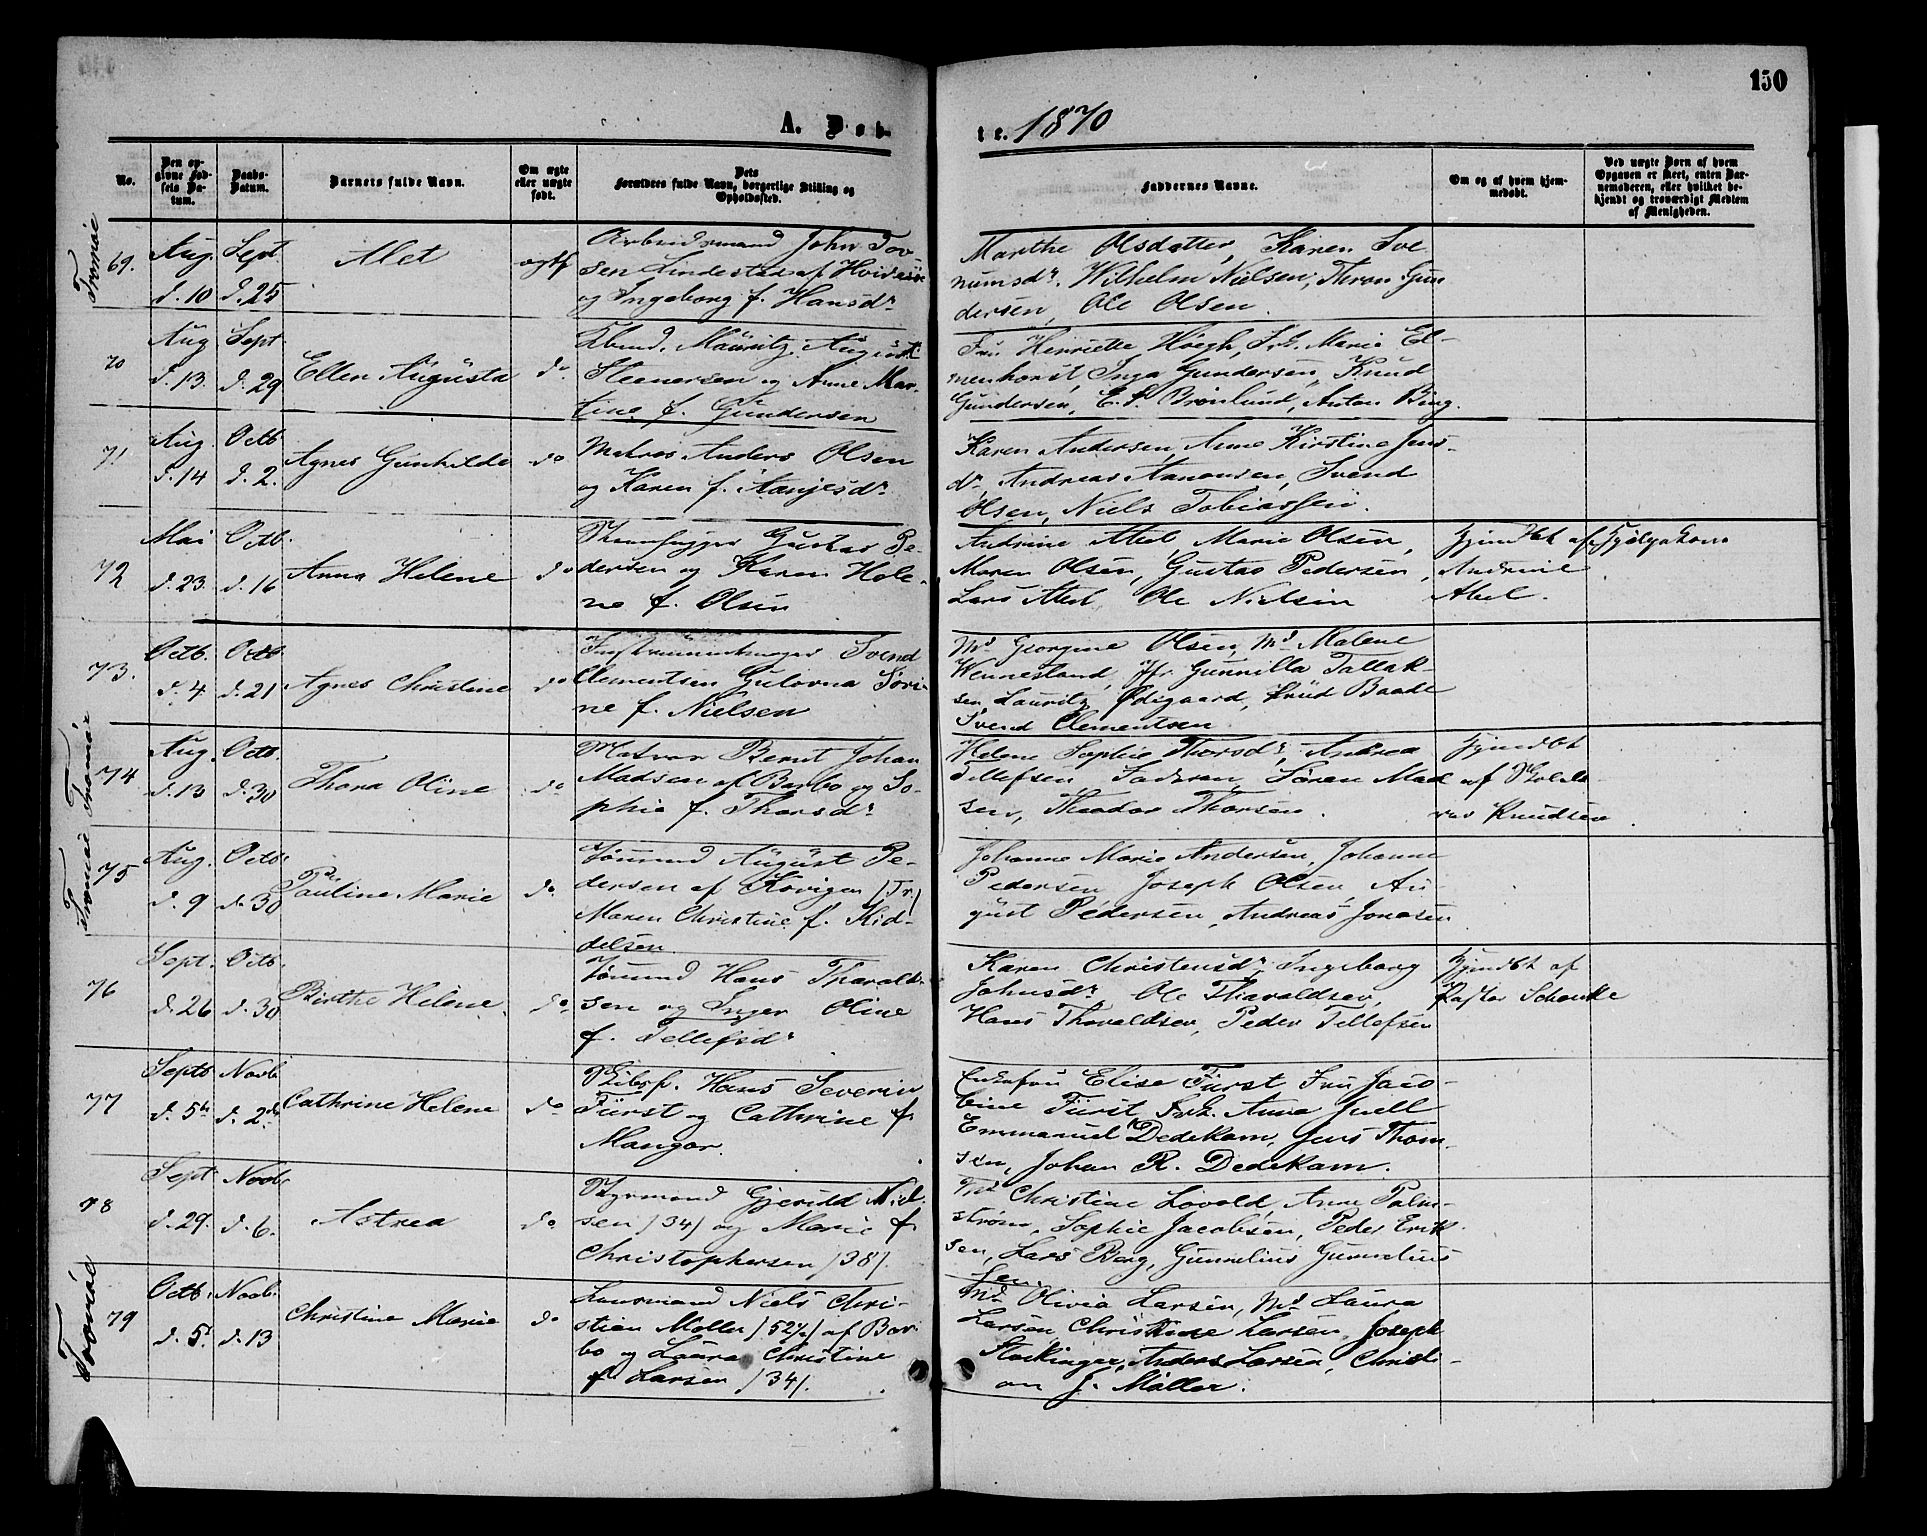 150
A. Døbte. 1870
No.
Den opgivne Fødsels Datum.
Daabs-Datum.
Barnets fulde Navn.
Om ægte eller uægte født.
Dets Forældres fulde Navn, borgerlige Stilling og Opholdssted.
Faddernes Navne.
Om og af hvem hjemmedøbt.
Ved uægte Børn af hvem Opgaven er skeet, enten Barnemoderen, eller hvilket bekjendt og troværdigt Medlem af Menigheden.
Tromöe
69.
Aug. d. 10
Sept. d. 25
Alet
ægte
Arbeidsmand John Tor-
sen Lindestad af Hvidesöe
og Ingeborg f. Hansdr
Marthe Olsdatter, Karen Sve
numsdr. Wilhelm Nielsen, Thron Gun
dersen, Ole Olsen.
70
Aug d. 13.
Sept d. 29
Ellen Augusta
do
Mauritz August
Steenersen og Anne Mar-
tine f. Gundersen
Fru Henriette Høegh, Frk. Marie El-
menhorst, Inga Gundersen, Knud
Gundersen, E. S. Brønlund, Anton Bing.
71
Aug. d. 14
Octb d. 2.
Agnes Gunhilde
do
Matros Anders Olsen
og Karen f. Aanjesdr
Karen Andersen, Anne Kirstine Jens-
dr, Andreas Aanonsen, Svend
Olsen, Niels Tobiassen.
72
Mai d. 23.
Octb. d. 16
Anna Helene
do
Gustav Pe-
dersen og Karen Hele-
ne f. Olsen
Andrine Abel Marie Olsen,
Maren Olsen, Gustav Pedersen,
Lars Abel Ole Nielsen
Hjemdbt af
Andrine
Abel.
73.
Octb. d. 4
Octb d. 21
Agnes Christine
do
Instrumentmager Svend
Clementsen Gulovna Søri-
ne f. Nielsen
Md Georgine Olsen, Md Malene
Wennesland, Jfr. Gunnilla Tallak-
sen, Lauritz Ødegaard, Knud Baade
Svend Clementsen.
Tromöe
74
Aug. d. 13
Octb. d. 30
Thora Oline
do
Matros Bernt Johan
Madsen af Barbo og So-
phie f. Thorsdr
Helene Sophie Thorsdr, Andrea
Tellefsen, Søren Mad
sen, Theodor Thorsen.
Hjemdbt
af
Knudsen
Tromöe
75
Aug. d. 9
Octb. d. 30
Pauline Marie
do.
Sømand August Pe-
dersen af Kovigen /Tr/
Maren Christine f. Kid-
delsen
Johanne Marie Andersen, Johanne
Pedersen, Joseph Olsen, Au-
gust Pedersen, Andreas Jonasen
76
Sept. d. 26
Octb. d. 30
Birthe Helene.
do.
Sømand Hans Thorvald-
sen og Inger Oline
f. Tellefsdr
Karen Christensdr, Ingeborg
Johnsdr Ole Tharaldsen,
Hans Tharaldsen, Peder Tellefsen
Hjemdbt af
Pastor Schanke
77
Septb d. 5te
Novb d. 2den
Cathrine Helene
do
Skibsf. Hans Severin
Fürst og Cathrine f.
Mangor.
Enkefru Elise Fürst Fru Jaco-
bine Fürst Frk. Anna Juell
Emmanuel Dedekam, Jens Thom-
sen, Johan R. Dedekam.
78
Sept d. 29.
Novb. d. 6.
Astrea
do
Styrmand Gjeruld Niel-
sen /34/ og Marie f.
Christophersen /38/.
Md Christine Lovold, Anne Palm-
strøm, Sophie Jacobsen, Peder Erik-
sen, Lars Berg, Gunnelius Gunnelius
sen.
Tromöe
79
Octb. d. 5t
Novb. d. 13
Christine Marie
do
Lousmand Niels Chri-
stian Møller /52½/ af Bar-
bo og Laura Christine
f. Larsen /34/.
Md Olivia Larsen, Md Laura
Larsen, Christine Larsen, Joseph
Stockinger, Anders Larsen, Christi-
an J. Møller.